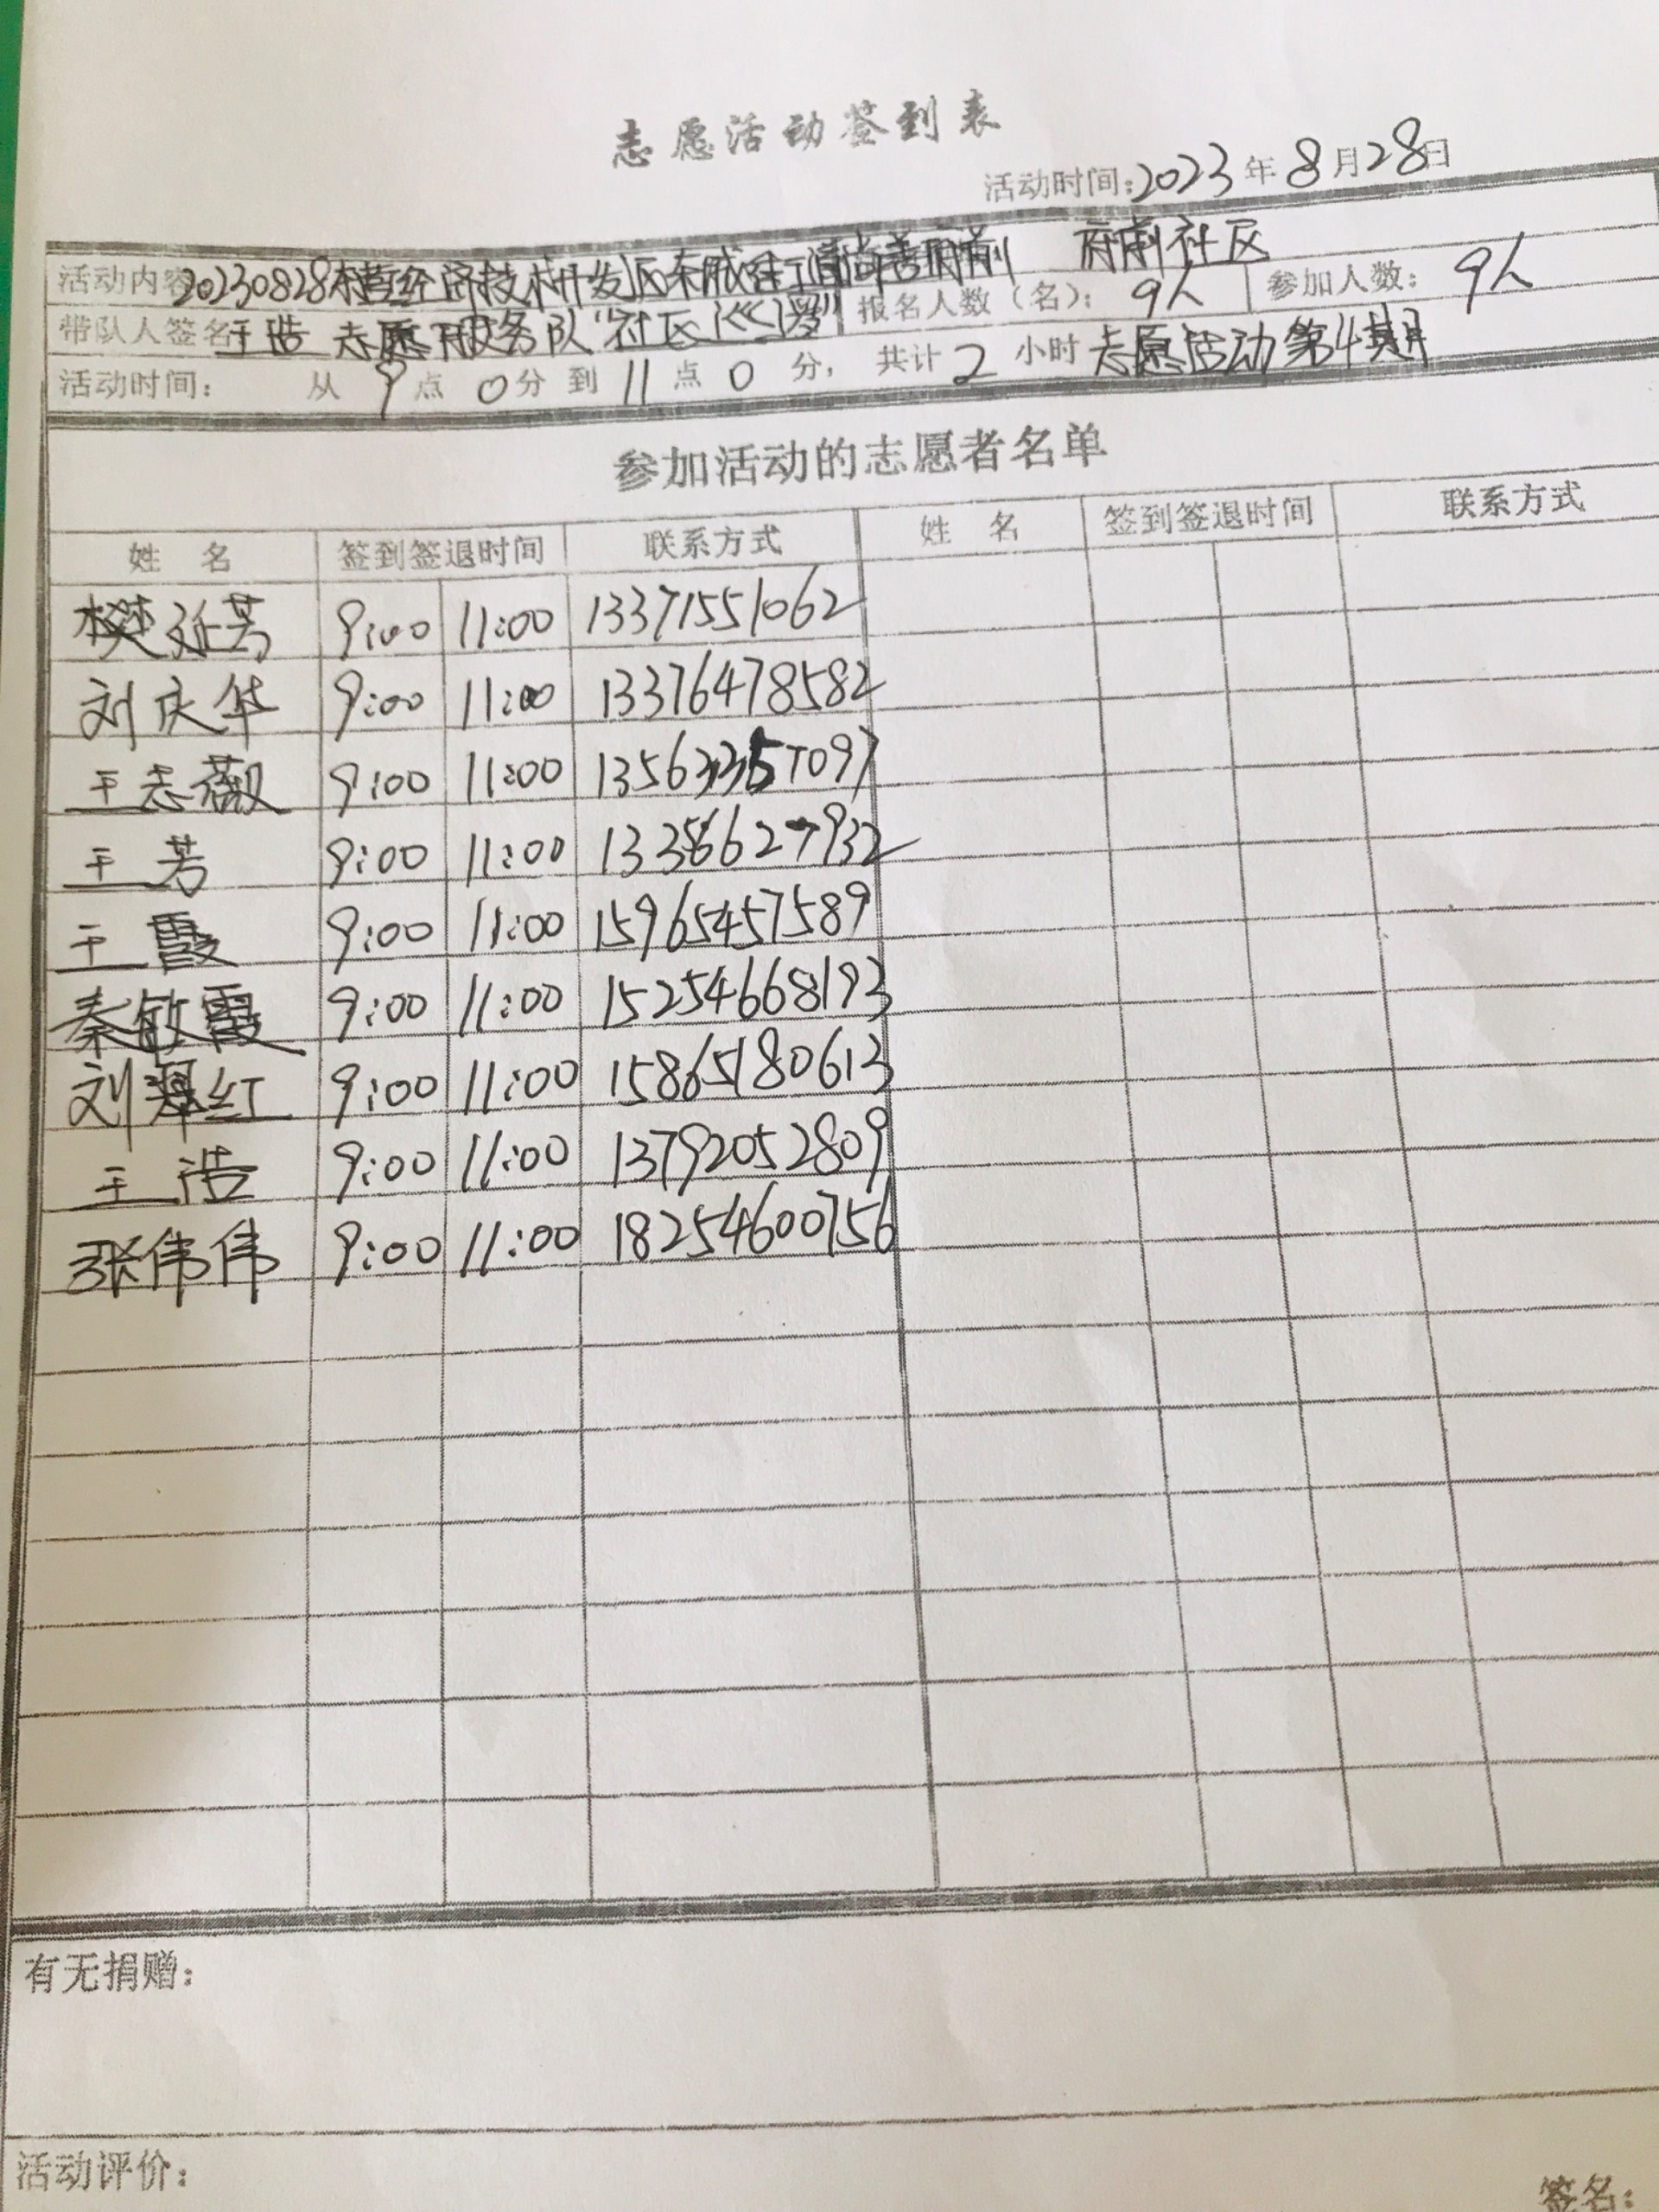 志愿活动签到表
活动时间：2023年8月28日
活动内容 20230828 经济技术开发区东城街道尚善府前 府前社区
带队人签名 王浩 志愿服务队“社区巡逻” 报名人数（名）：9人 参加人数：9人
活动时间： 从9点0分到11点0分，共计2小时 志愿活动第4期
参加活动的志愿者名单
姓 名 签到签退时间 联系方式 姓 名 签到签退时间 联系方式
樊延芳 9:00 11:00 13371551062
刘庆华 9:00 11:00 13376478582
王志薇 9:00 11:00
王芳 9:00 11:00
王霞 9:00 11:00 15965457589
秦敏霞 9:00 11:00 15254668193
刘翠红 9:00 11:00 15865180613
王浩 9:00 11:00 13792052809
张伟伟 9:00 11:00 18254600756
有无捐赠：
活动评价：
签名：